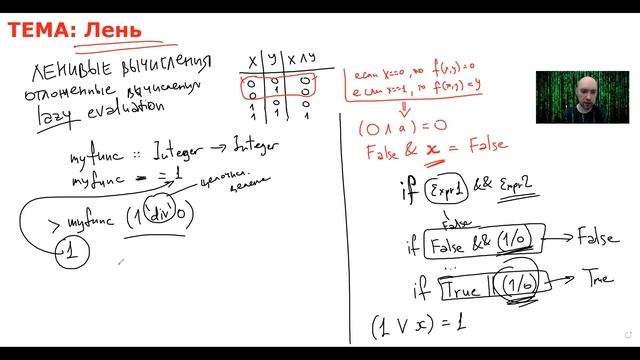 ТЕМА: Лень
ЛЕНИВЫЕ ВЫЧИСЛЕНИЯ
отложенные вычисления
lazy evaluation
x y x ∧ y
0 0 0
0 1 0
1 0 0
1 1 1
myfunc :: Integer → Integer
myfunc _ = 1
целочисл. деление
> myfunc (1 `div` 0)
1
если x==0, то f(x,y)=0
если x==1, то f(x,y)=y
⇓
(0 ∧ a) = 0
False & x = False
if Expr1 && Expr2
False
if False && (1/0) → False
...
if True || (1/0) → True
(1 ∨ x) = 1